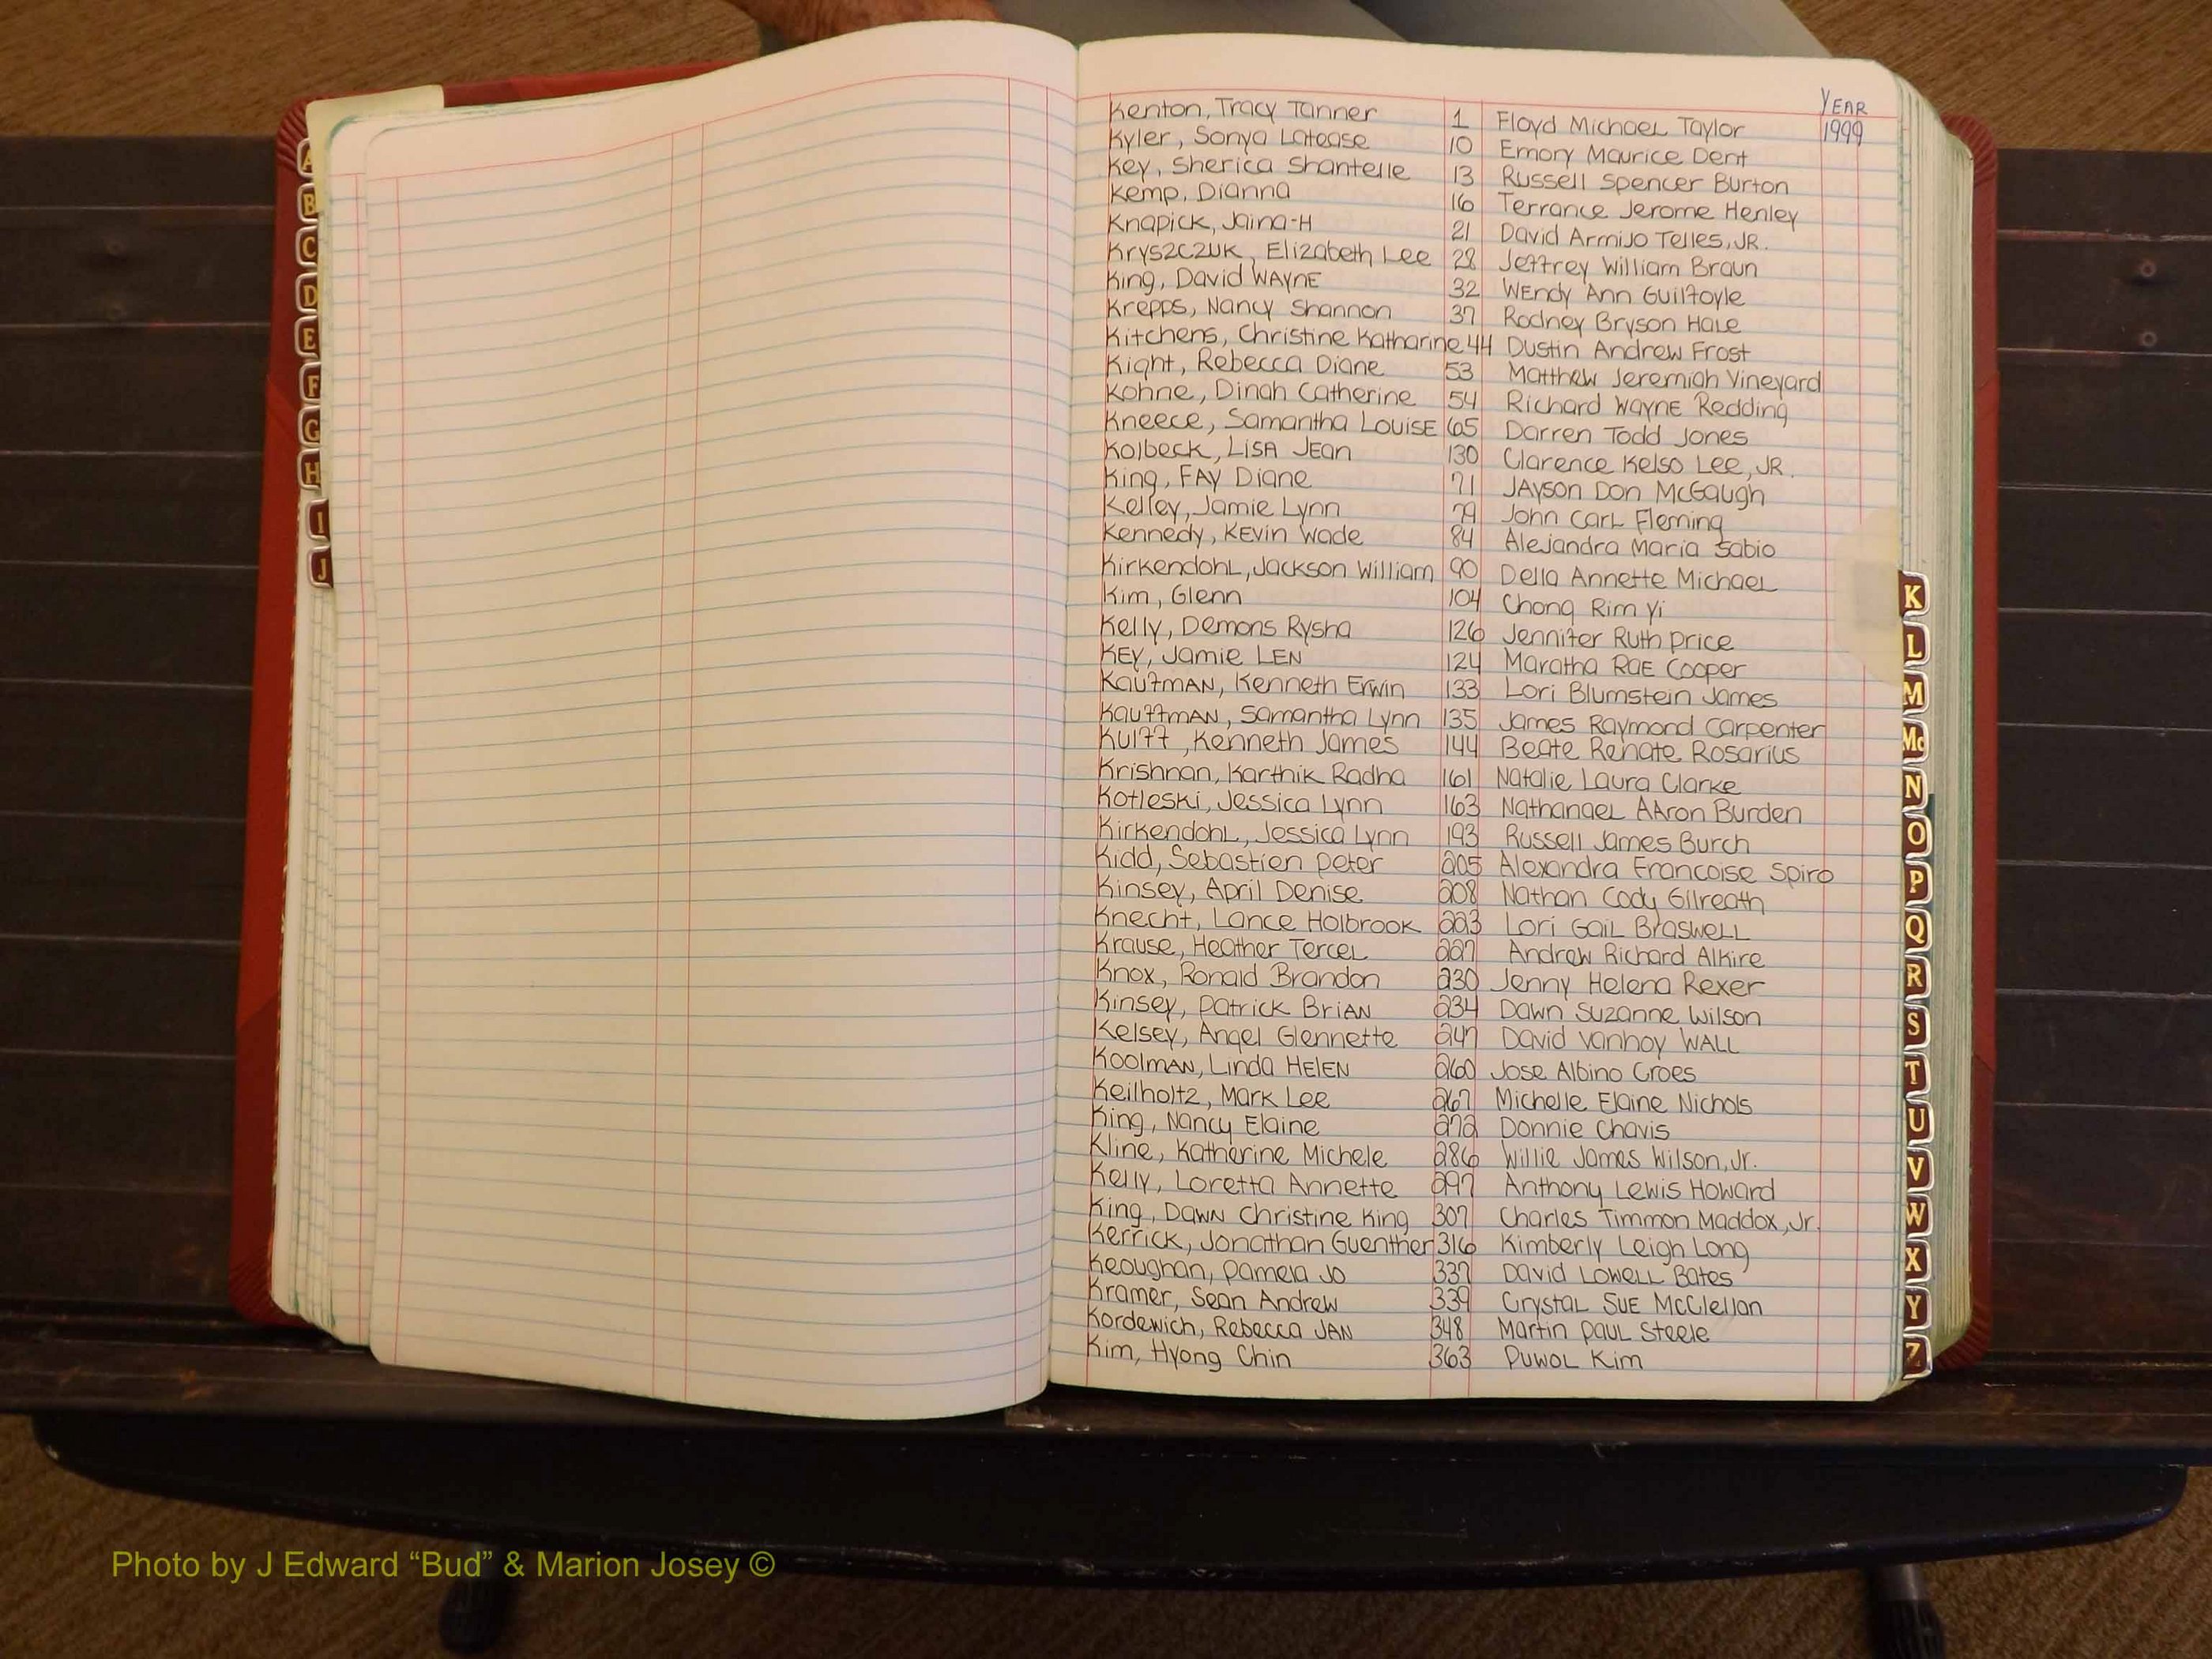 YEAR
Kenton, Tracy Tanner 1 Floyd Michael Taylor 1999
Kyler, Sonya Latease 10 Emory Maurice Dent
Key, Sherica Shantelle 13 Russell Spencer Burton
Kemp, Dianna 16 Terrance Jerome Henley
Knapick, Jaina-H 21 David Armijo Telles, JR.
Kryszczuk, Elizabeth Lee 28 Jeffrey William Braun
King, David WAYNE 32 WEndy Ann Guilfoyle
Krepps, Nancy Shannon 37 Rodney Bryson Hale
Kitchens, Christine Katharine 44 Dustin Andrew Frost
Kight, Rebecca Diane 53 Matthew Jeremiah Vineyard
Kohne, Dinah Catherine 54 Richard WAYNE Redding
Kneece, Samantha LouisE 65 Darren Todd Jones
Kolbeck, LiSA JEan 130 Clarence Kelso Lee, JR.
King, FAY Diane 71 JAYson Don McGaugh
Kelley, Jamie Lynn 79 John CarL Fleming
Kennedy, KEvin Wade 84 Alejandra Maria Sabio
KirkendohL, Jackson William 90 Della Annette MichaeL
Kim, Glenn 104 Chong Rim Yi
Kelly, Demons Rysha 126 Jennifer Ruth Price
KEY, Jamie LEN 124 Maratha RaE Cooper
KaufMAN, Kenneth Erwin 133 Lori Blumstein James
KauffmAN, Samantha Lynn 135 James Raymond Carpenter
Kulff, Kenneth James 144 Beate Renate Rosarius
Krishnan, Karthik Radha 161 Natalie Laura Clarke
Kotleski, Jessica Lynn 163 NathanaeL AAron Burden
KirkendohL, Jessica Lynn 193 Russell James Burch
Kidd, Sebastien Peter 205 Alexandra Francoise Spiro
Kinsey, April Denise 208 Nathan Cody Gilreath
Knecht, Lance Holbrook 223 Lori GaiL BraswelL
Krause, Heather TerceL 227 Andrew Richard Alkire
Knox, Ronald Brandon 230 Jenny Helena Rexer
Kinsey, Patrick BriAN 234 Dawn Suzanne Wilson
Kelsey, Angel Glennette 247 David Vanhoy WALL
KoolmAN, Linda HElEN 260 Jose Albino Croes
Keilholtz, Mark Lee 267 Michelle Elaine Nichols
King, Nancy Elaine 272 Donnie Chavis
Kline, Katherine Michele 286 Willie James Wilson, Jr.
Kelly, Loretta Annette 297 Anthony Lewis Howard
King, DawN Christine King 307 Charles Timmon Maddox, Jr.
Kerrick, Jonathan Guenther 316 Kimberly Leigh Long
Keoughan, Pamela Jo 337 David LowelL Bates
Kramer, Sean Andrew 339 CrystaL SuE McClellan
Kordewich, Rebecca JAN 348 Martin PauL Steele
Kim, Hyong Chin 363 PuwoL Kim
A
B
C
D
E
F
G
H
I
J
K
L
M
Mc
N
O
P
Q
R
S
T
U
V
W
X
Y
Z
Photo by J Edward “Bud” & Marion Josey ©